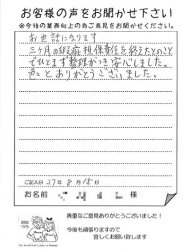 お客様の声をお聞かせ下さい
※今後の業務向上の為ご意見をお聞かせください。
お世話になります
三ヶ月の瑕疵担保責任を終えたとのこと
でひとまず整理がつき安心しました。
色々とありがとうございました。
ご記入日 27年 8月 15日
お名前 様
貴重なご意見ありがとうございました!
今後も頑張りますので
宜しくお願い致します